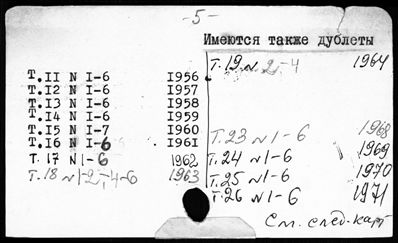 -5-
Имеются также дубеты
Т.11 N 1-6 1956
Т.12 N 1-6 1957
Т.13 N 1-6 1958
Т.14 N 1-6 1959
Т.15 N 1-7 1960
Т.16 N 1-6 1961
Т.17 N 1-6 1962
Т.18 N 1-2,-4-6 1963
Т.19 N. 2,-4 1964
Т.23 N 1-6 1968
Т.24 N 1-6 1969
Т.25 N 1-6 1970
Т.26 N 1-6 1971
См. след. карт